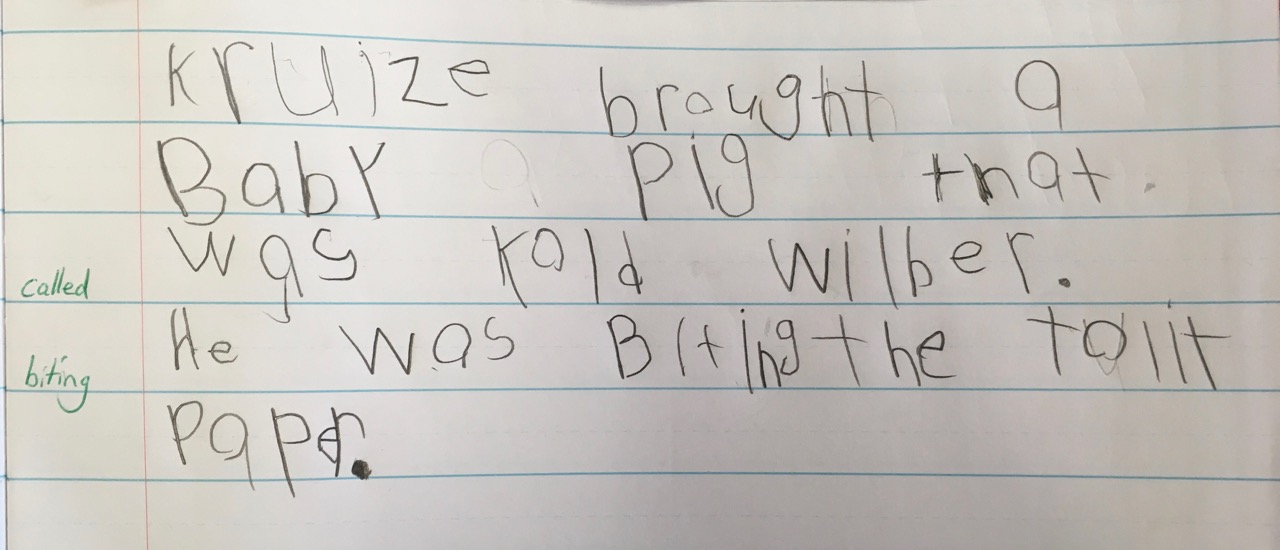 Kruize brought a
Baby a pig that.
called was Kold wilber.
He was Biting the tolit
biting paper.